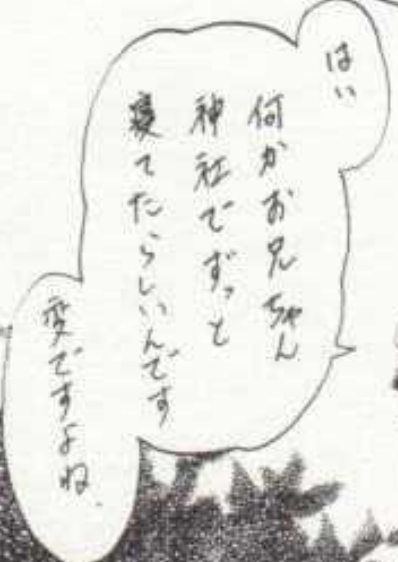 はい
何かお兄ちゃん
神社でずっと
寝てたらしいんです
変ですよね、